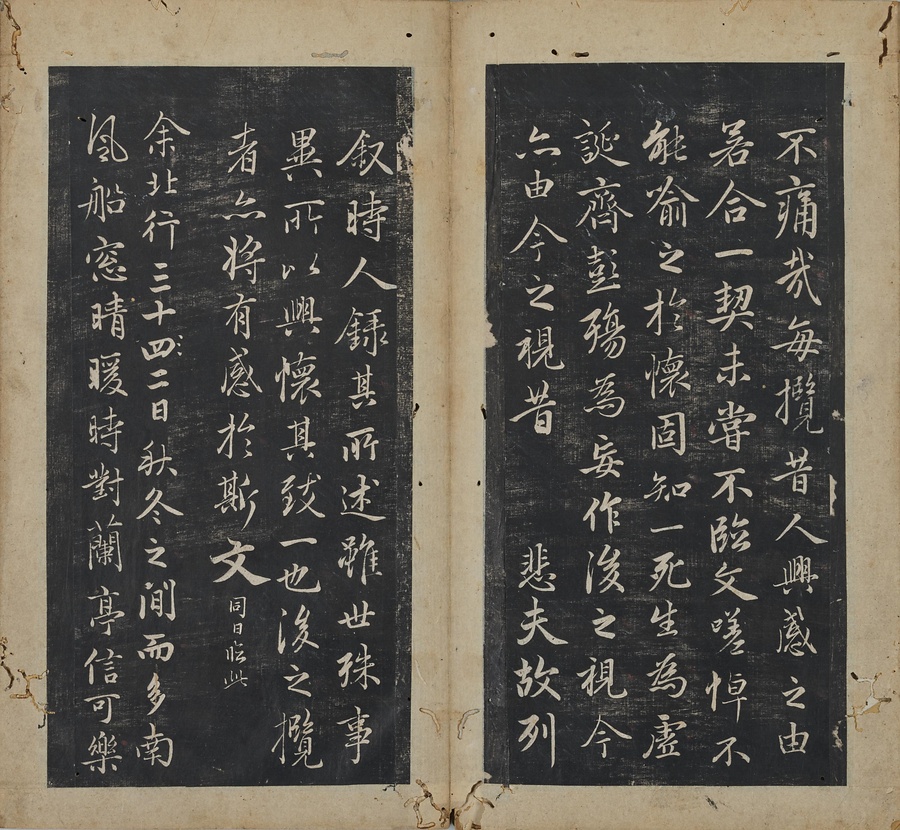 不痛哉每攬昔人興感之由
若合一契未嘗不臨文嗟悼不
能喻之於懷固知一死生為虛
誕齊彭殤為妄作後之視今
亦由今之視昔 悲夫故列
叙時人錄其所述雖世殊事
異所以興懷其致一也後之攬
者亦將有感於斯文 同日臨此
余北行三十四二日秋冬之間而多南
風船窓晴暖時對蘭亭信可樂